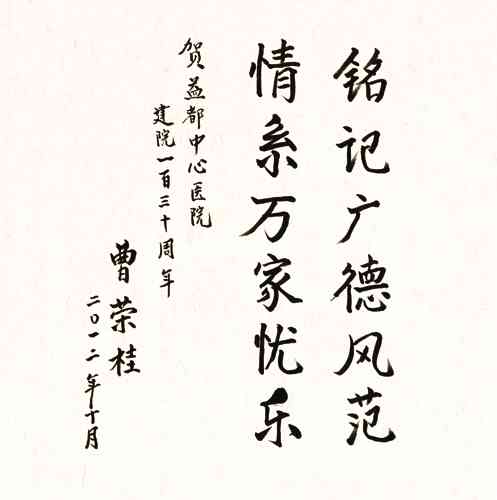 铭记广德风范
情系万家忧乐
贺益都中心医院
建院一百三十周年
曹荣桂
二〇一二年十月